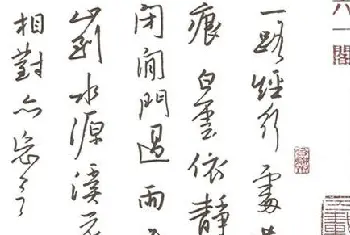 六一閣
一路經行處
痕白雲依靜
閉閒門過雨
山到水源溪
相對亦忘言